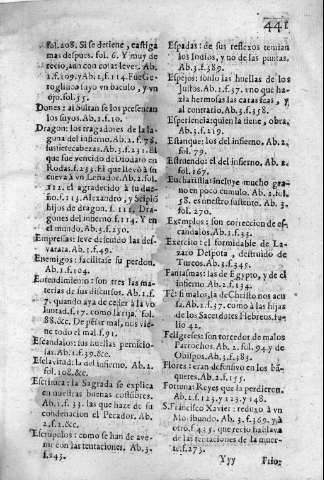 441
fol. 208. Si se detiene, castiga
mas despues. fol. 6. Y muy de
recio, aun con cosas leves. Ab.
2. f. 109. y Ab. 2. f. 114. Fue Ge-
roglifico suyo vn baculo, y vn
ojo. fol. 35.
Dones: al buscan se los presentan
los suyos. Ab. 2. f. 10.
Dragon: los tragadores de la la-
guna del infierno. Ab. 2. f. 78.
sus siete cabezas. Ab. 3. f. 231. El
que fue vencido de Diodato en
Rodas. f. 233. El que llevò à su
cueva à vn Leñador. Ab. 2. fol.
112. el agradecido à su due-
ño. f. 113. Alexandro, y Scipiõ
hijos de dragon. f. 112. Dra-
gones del infierno. f. 114. Y en
el mundo. Ab. 3. f. 230.
Empresas: leve defiende las des-
varata. Ab. 2. f. 49.
Enemigos: facilitase su perdon.
Ab. 1. f. 104.
Entendimiento: son tres las ma-
terias de sus discursos. Ab. 2. f.
7. quando aya de ceder à la vo
luntad. f. 17. como la rija. fol.
88. &c. De pẽsar mal, nos vie-
ne todo el mal. f. 91.
Escandalos: sus huellas pernicio-
sas. Ab. 1. f. 39. &c.
Esclavitud: la del infierno. Ab. 2.
fol. 108. &c.
Escritura: la Sagrada se explica
en nuestras buenas costũbres.
Ab. 1. f. 33. las que haze de su
condenacion el Pecador. Ab.
2. f. 2. &c.
Escrupulos: como se han de ave-
nir con las tentaciones. Ab. 3.
f. 243.
Espadas: de sus reflexos temian
los Indios, y no de las puntas.
Ab. 3. f. 389.
Espejos: sonlo las huellas de los
Justos. Ab. 1. f. 37. vno que ha-
zia hermosas las caras feas, y
al contrario. Ab. 3. f. 358.
Esperiencia: quien la tiene, obra.
Ab. 3. f. 219.
Estanque: los del infierno. Ab. 2.
fol. 79.
Estruendo: el del infierno. Ab. 2.
fol. 167.
Eucharistia: incluye mucho gra-
no en poco cumulo. Ab. 2. fol.
58. es nuestro sustento. Ab. 3.
fol. 270.
Exemplos: son correccion de es-
candalos. Ab. 1. f. 33.
Exercito: el formidable de La-
zaro Despota, destruido de
Turcos. Ab. 1. f. 345.
Fantasmas: las de Egypto, y de el
infierno. Ab. 2. f. 34.
Fè: si malos, la de Christo nos acu
sa. Ab. 1. f. 37. como à las hijas
de los Sacerdotes Hebreos. fo-
lio 42.
Feligreses: son torcedor de malos
Parrochos. Ab. 2. fol. 94. y de
Obispos. Ab. 3. f. 183.
Flores: eran defensivo en los bã-
quetes. Ab. 2. f. 155.
Fortuna: Reyes que la perdieron.
Ab. 2. f. 123. y 123. y 148.
S. Francisco Xavier: reduxo à vn
Moribundo. Ab. 3. f. 369. y à
otro. f. 435. que recio hablava
de las tentaciones de la muer-
te. f. 273.
Yyy
Frio: